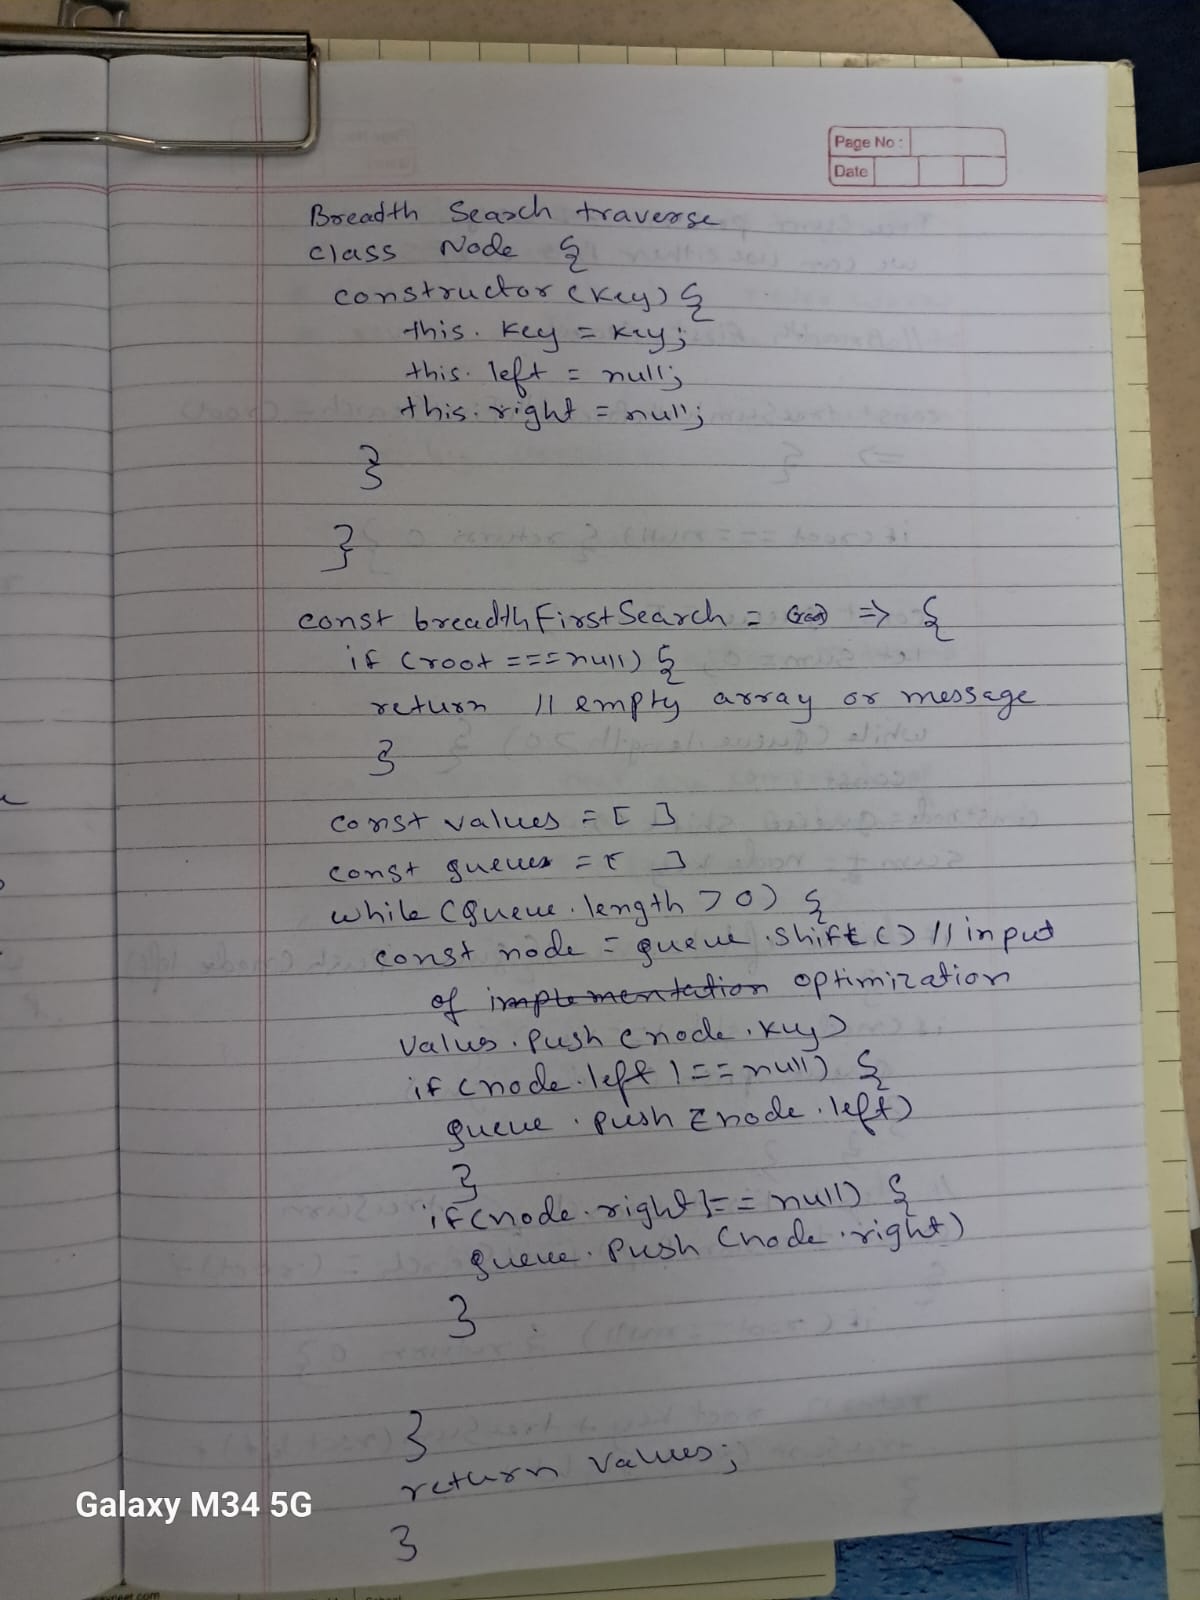 Page No :
Date
Breadth Search traverse
class Node {
constructor (key) {
this. key = key;
this. left = null;
this. right = null;
}
}
const breadthFirstSearch = (root) => {
if (root === null) {
return // empty array or message
}
const values = [ ]
const queues = [ ]
while (queue.length > 0) {
const node = queue.shift() // input
of implementation optimization
values.push (node.key)
if (node.left !== null) {
queue.push (node.left)
}
if (node.right !== null) {
queue.push (node.right)
}
}
return values;
}
Galaxy M34 5G